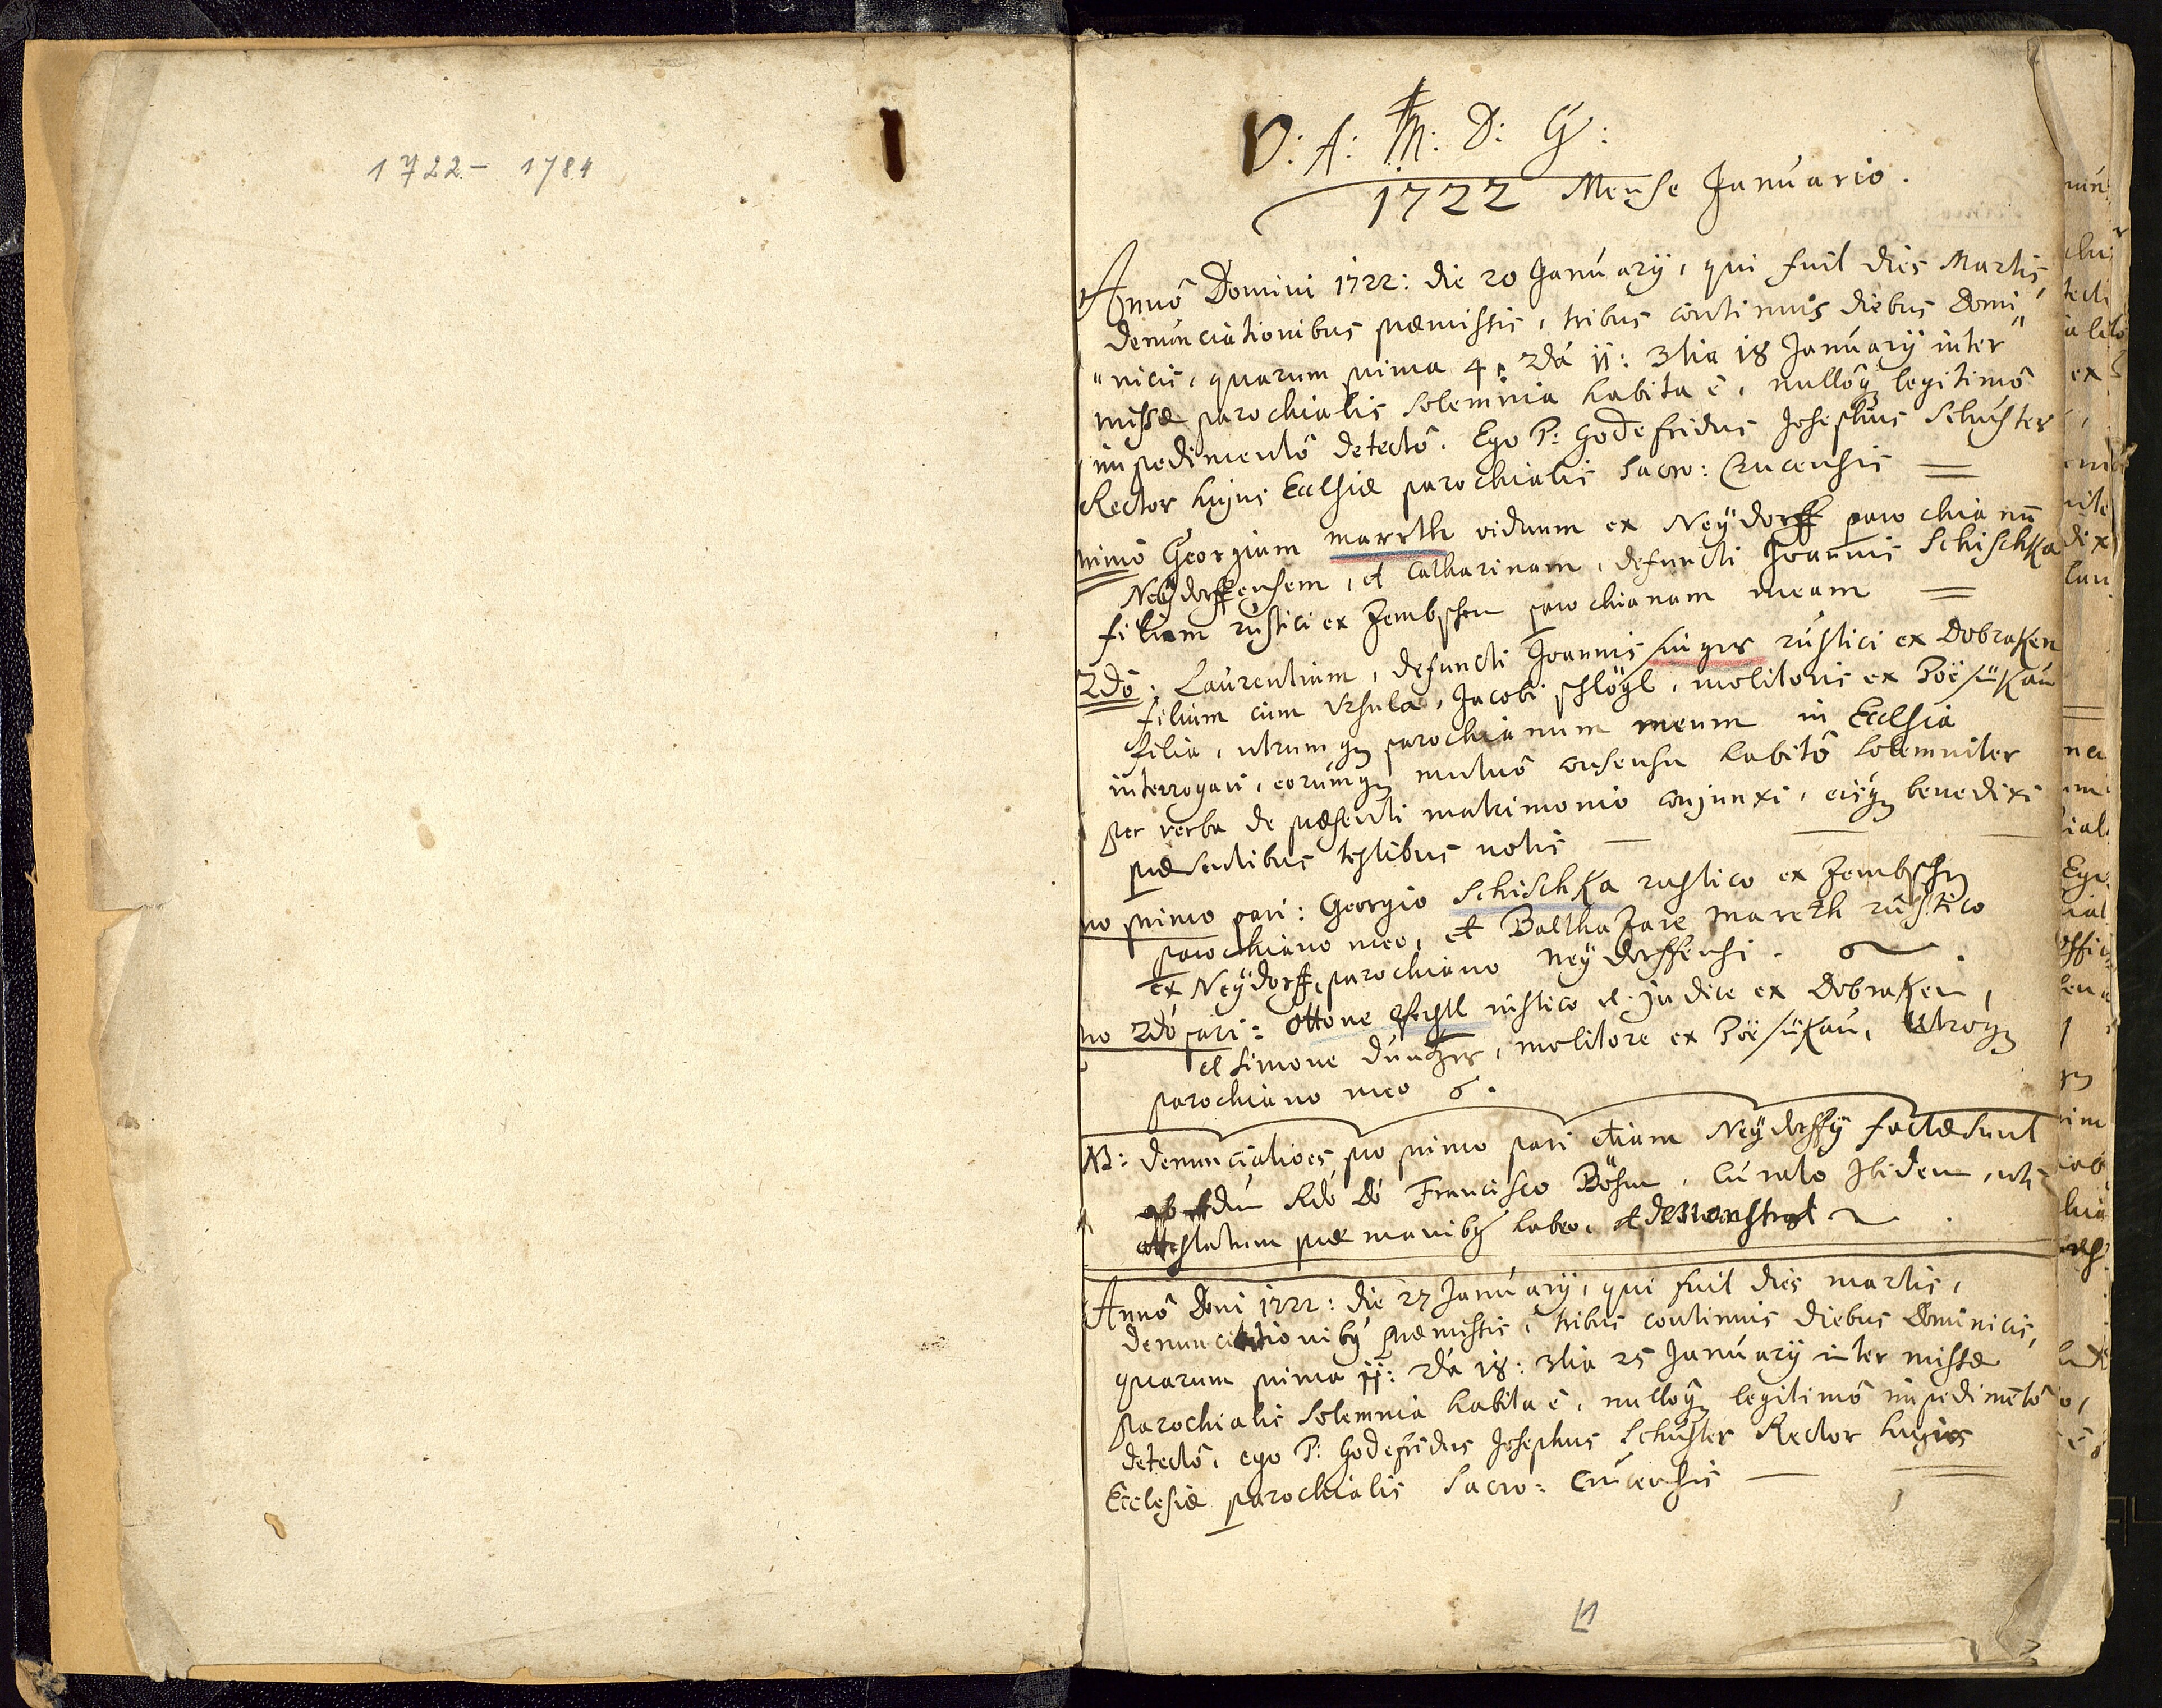 1722 - 1784
O: A: M: D: G:
1722 Mense Januario.
Annô Domini 1722: die 20 Januarÿ, qui fuit dies Martis,
denunciationibus præmissis, tribus continuis diebus Domi„
„nicis, quarum prima 4. 2dá 11: 3tia 18 Januarÿ inter
missæ parochialis solemnia habita ē, nullôq legitimô
impedimentô detectô. Ego P: Godefridus Josephus Schuster
Rector hujus Ecclsiæ parochialis Sacro: Crucensis
primô Georgium marrth viduum ex Neÿdorff parochianū
Neÿdorffensem, et Catharinam, defuncti Joannis Schischka
filiam rustici ex Zembschen parochianam meam
2dô: Laurentium, defuncti Joannis rustici ex Dobraken
filium cum Ursula, Jacobi schlögl, molitoris ex
filia, utrumq parochianum meum in Ecclsia
interrogavi, eorumq mutuô consensu habitô solemniter
per verba de præsenti matrimonio conjunxi, eisq benedixi
præsentibus testibus notis
no primo pari: Georgio Schischka rustico ex Zembschen
parochiano meo, et Balthazare rustico
ex Neÿdorff, parochiano Neÿdorffensi.
no 2dó pari: Ottone rustico et judice ex Dobraken,
et Simone molitore ex utroq
parochiano meo
NB: denunciatioēs pro primo pari etiam Neÿdorffÿ factæ sunt
ab Rdó Dó Francisco Böhm, Curato Ibidem, uti
attestatum præ manibꝰ habeo, et demonstrat
Annô Doni 1722: die 27 Januarÿ, qui fuit dies martis,
denunciationibꝰ præmissis, tribus continuis diebus Dominicis,
quarum prima 11: 2dá 18: 3tia 25 Januarÿ inter missæ
parochialis solemnia habita ē, nullôq legitimô impedimētô
detectô, ego P: Godefridus Josephus Schuster Rector hujus
Ecclesiæ parochialis Sacro: Crucensis